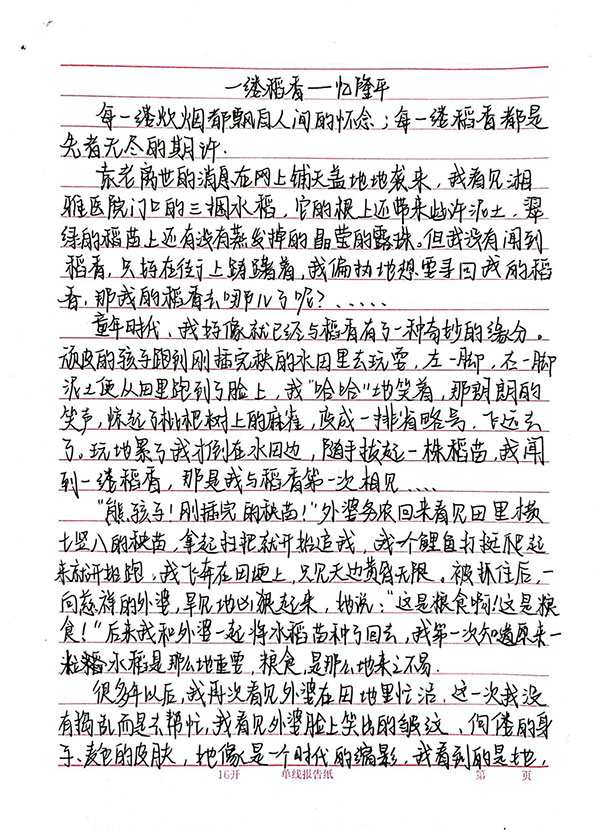 一缕稻香——忆隆平
每一缕炊烟都飘启人间的怀念；每一缕稻香都是
先者无尽的期许.
袁老离世的消息在网上铺天盖地地袭来，我看见湘
雅医院门口的三捆水稻，它的根上还带来些许泥土，翠
绿的稻苗上还有没有蒸发掉的晶莹的露珠。但我没有闻到
稻香，只好在街上踌躇着，我偏执地想要寻回我的稻
香，那我的稻香去哪儿了呢？......
童年时代、我好像就已经与稻香有了一种奇妙的缘分。
顽皮的孩子跑到刚插完秧的水田里去玩耍，左一脚，右一脚
泥土便从田里跑到了脸上，我“哈哈”地笑着，那朗朗的
笑声，惊起了枇杷树上的麻雀，变成一排省略号，飞远去
了。玩地累了我打倒在水田边，随手拔起一株稻苗，我闻
到一缕稻香，那是我与稻香第一次相见.....
“熊孩子！刚插完的秧苗！”外婆务农回来看见田里横
七竖八的秧苗，拿起扫把就开始追我，我一个鲤鱼打挺爬起
来就开始跑，我飞奔在田埂上，只见天边黄昏无限。被抓住后，一
向慈祥的外婆，罕见地凶狠起来，她说：“这是粮食啊！这是粮
食！”后来我和外婆一起将水稻苗种了回去，我第一次知道原来一
粒稻水稻是那么地重要，粮食，是那么地来之不易.
很多年以后，我再次看见外婆在田地里忙活，这一次我没
有捣乱而是去帮忙，我看见外婆脸上笑出的皱纹、佝偻的身
子、麦色的皮肤，她像是一个时代的缩影，我看到的是她，
16开 单线报告纸 第 页